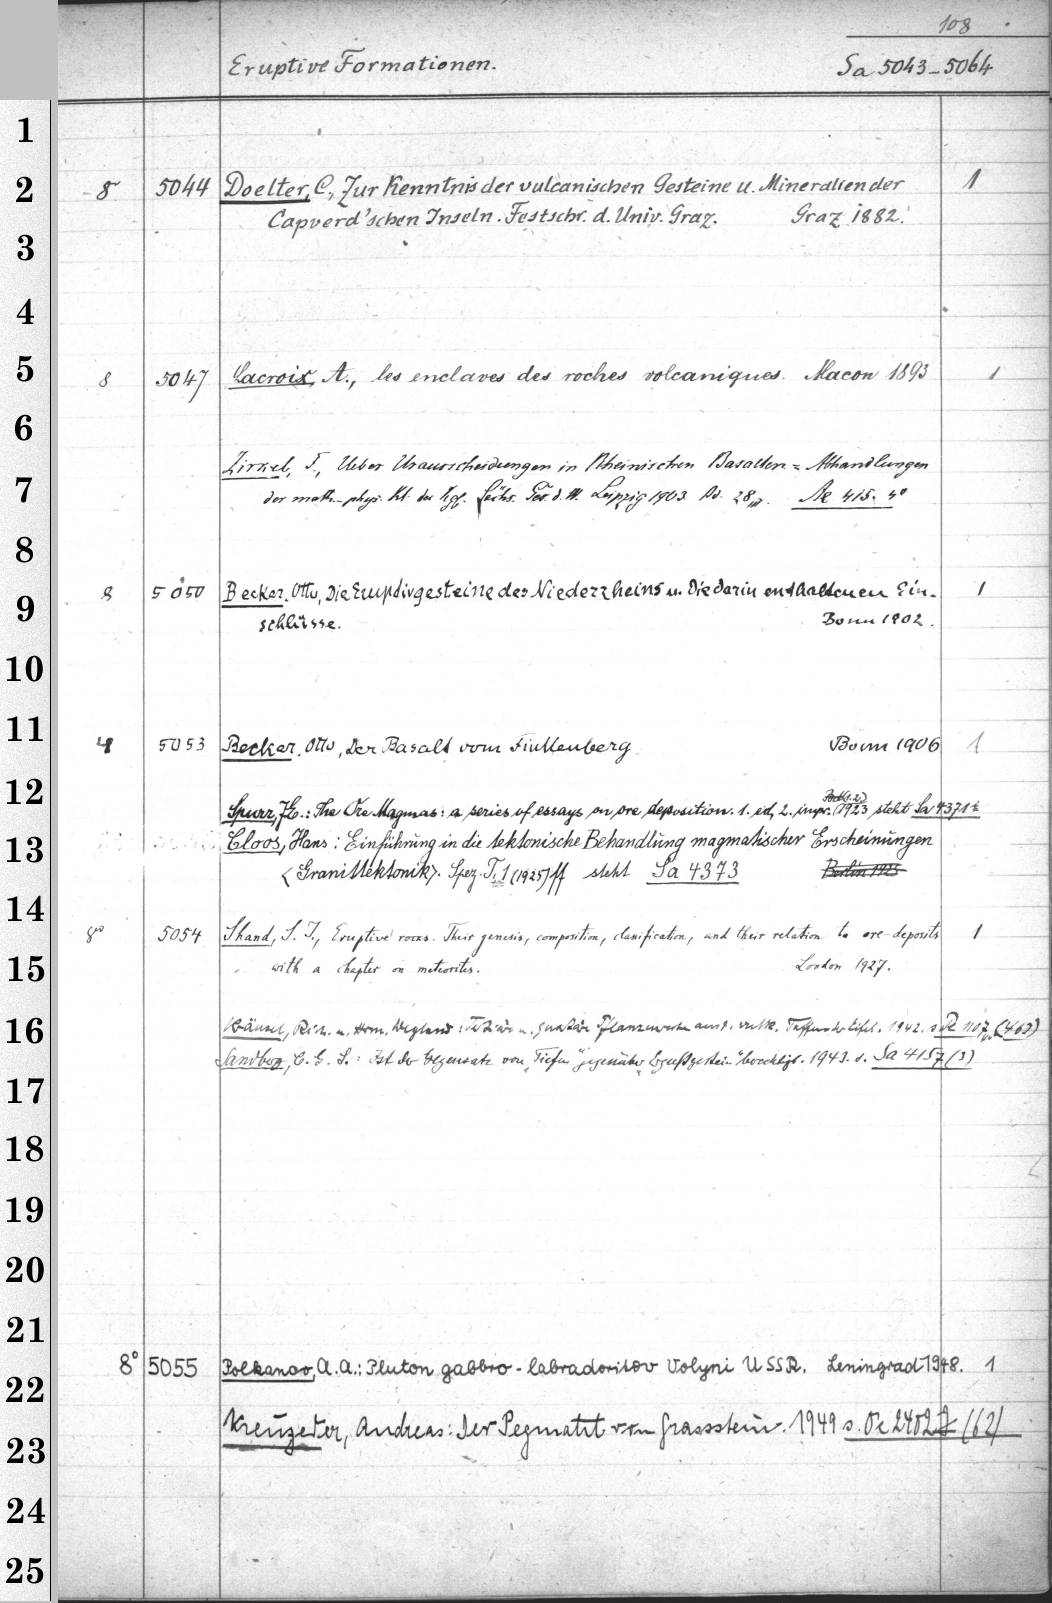 108
Eruptive Formationen. Sa 5043-5064
1
2 8 5044 Doelter, C., Zur Kenntnis der vulcanischen Gesteine u. Mineralien der 1
Capverd'schen Inseln. Festschr. d. Univ. Graz. Graz 1882.
3
4
5 8 5047 Lacroix, A., les enclaves des roches volcaniques. Macon 1893 1
6
Zirkel, F., Ueber Urausscheidungen in Rheinischen Basalten = Abhandlungen
7 der math-phys. Kl. der Kgl. Sächs. Ges. d. W. Leipzig 1903. Bd. 28, 415. 4°
8
8 5050 Becker, Otto, Die Eruptivgesteine des Niederrheins u. Die darin enthaltenen Ein- 1
9 schlüsse. Bonn 1902.
10
11 4 5053 Becker, Otto, Der Basalt vom Finkenberg. Bonn 1906 1
12 Spurr, J.E.: The Ore Magmas: a series of essays on ore deposition. 1. ed, 2. impr. 1923 steht Sa 4371
13 Cloos, Hans: Einführung in die tektonische Behandlung magmatischer Erscheinungen
<Granittektonik>. Spez. T. 1 (1925) ff steht Sa 4373 Berlin 1925
14 8° 5054 Shand, S. J., Eruptive rocks. Their genesis, composition, classification, and their relation to ore-deposits 1
15 with a chapter on meteorites. London 1927.
16 Kräusel, Rich. u. Herm. Weyland: Tertiäre u. Quartäre Pflanzenreste aus d. vulk. Tuffen der Eifel. 1942. s. (463)
Sandberg, C. G. S.: Ist der Gegensatz von "Tiefen" gegenüber "Ergußgestein" berechtigt. 1943. s. Sa 4157 (3)
17
18
19
20
21
8° 5055 Polkanov, A. A.: Pluton gabbro-labradoritov Volyni USSR. Leningrad 1948. 1
22
23 Kreuzeder, Andreas: Der Pegmatit von Grassstein. 1949 s. 2402 (62)
24
25